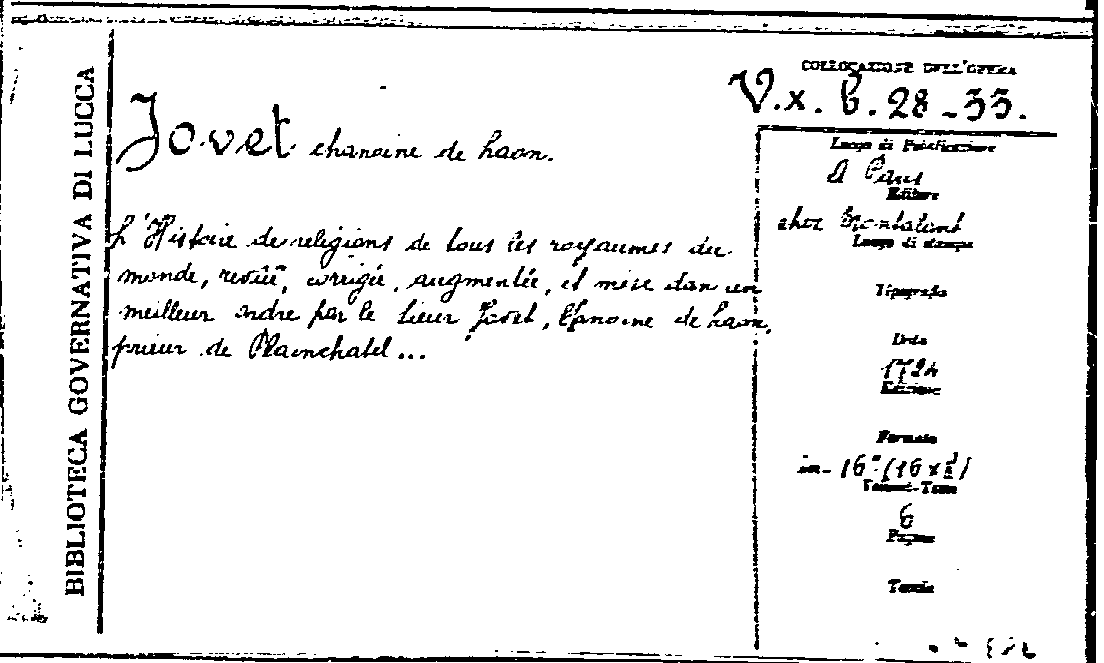 BIBLIOTECA GOVERNATIVA DI LUCCA
COLLOCAZIONE DELL'OPERA
V.x. b. 28-33.
Jovet chanoine de Laon.
L'Histoire de religions de tous les royaumes du
monde, revûë, corrigée, augmentée, et mise dan un
meilleur ordre par le Sieur Jovet, Chanoine de Laon,
prieur de Plainchatel...
Luogo di Pubblicazione
A Paris
Editore
chez Montalant
Luogo di stampa
Tipografia
Data
1724
Edizione
Formato
in-16° (16x
Volumi-Tomi
6
Pagine
Tavole